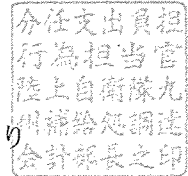 分任支出負担
行為担当官
陸上自衛隊九
州補給処調達
会計部長之印
り